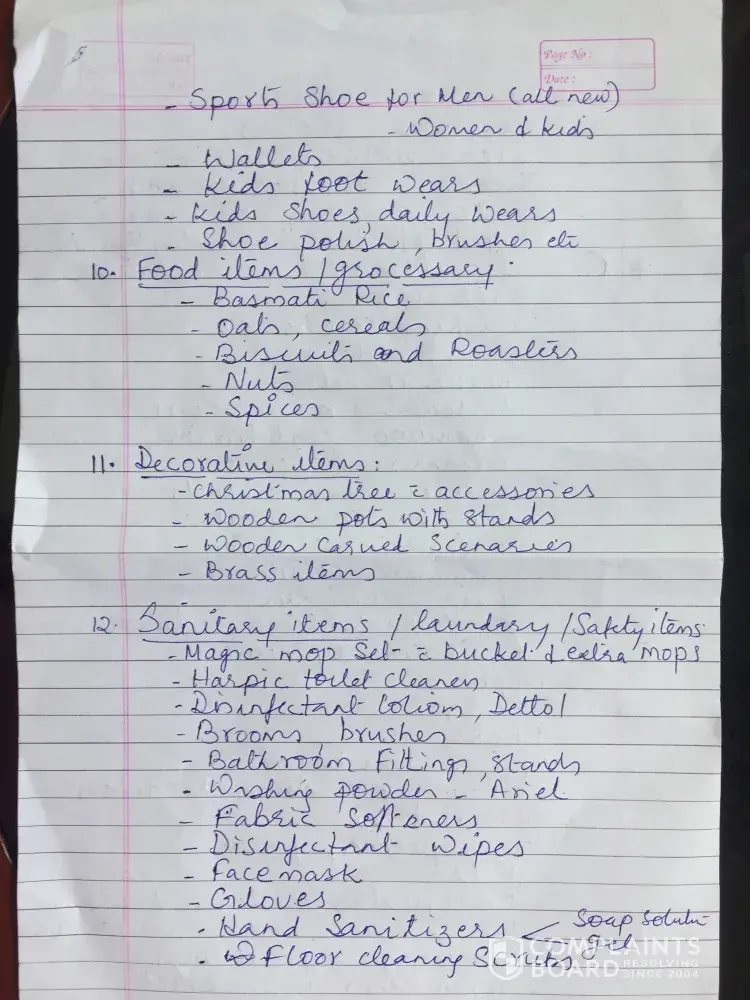 5
Page No :
Date :
- Sports Shoe for Men (all new)
- Women & kids
- Wallets
- Kids foot wears
- Kids Shoes, daily wears
- Shoe polish, brushes etc
10. Food items / grocessary.
- Basmati Rice
- Oats, cereals
- Biscuits and Roasters
- Nuts
- Spices
11. Decorative items :
- Christmas tree = accessories
- Wooden pots with stands
- Wooden Carved Scenaries
- Brass items
12. Sanitary items / laundary / Safety items
- Magic mop Set = bucket & extra mops
- Harpic toilet cleaners
- Disinfectant lotions, Dettol
- Brooms, brushes
- Bathroom Fittings, stands
- Washing powder - Ariel
- Fabric Softeners
- Disinfectant wipes
- Facemask
- Gloves
- Hand Sanitizers < Soap Solutu
gel
- Floor cleaning Scrubs
COMPLAINTS
BOARD RESOLVING
SINCE 2004